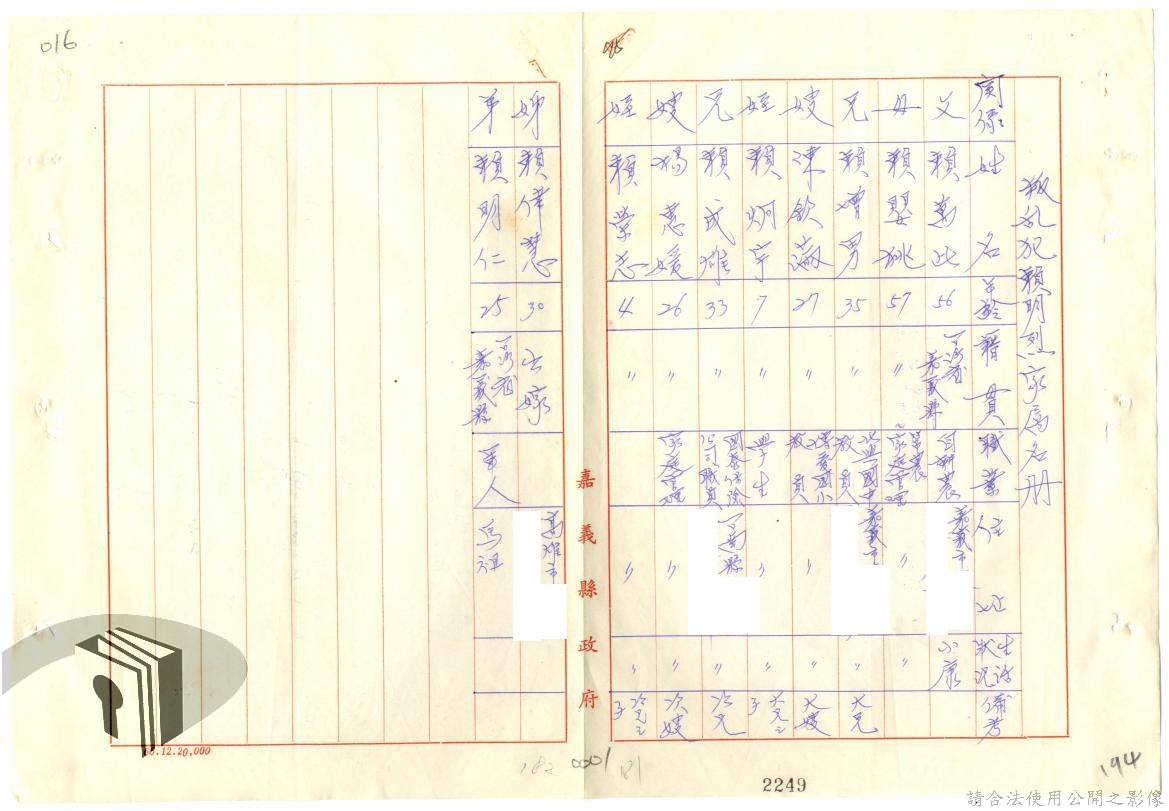 016
叛乱犯賴明烈家属名册
関係 姓名 年齡 籍貫 職業 住址 生活狀況 備考
父 賴 56 嘉義縣 自耕農 嘉義市 小康
母 賴 57 〃 家庭管理 〃 〃
兄 賴增男 35 〃 國中教員 嘉義市 〃 大兄
嫂 陳欽 27 〃 國小教員 〃 〃 大嫂
姪 賴炯宇 7 〃 學生 〃 〃 大兄之子
兄 賴成雄 33 〃 國泰保險公司職員 縣 〃 次兄
嫂 楊惠媛 26 〃 家庭管理 〃 〃 次嫂
姪 賴榮志 4 〃 〃 〃 次兄之子
嘉義縣政府
姊 賴偉慧 30 出嫁 高雄市
弟 賴明仁 25 嘉義縣 軍人 馬祖 〃
12.20,000
182
0001
181
2249
194
請合法使用公開之影像